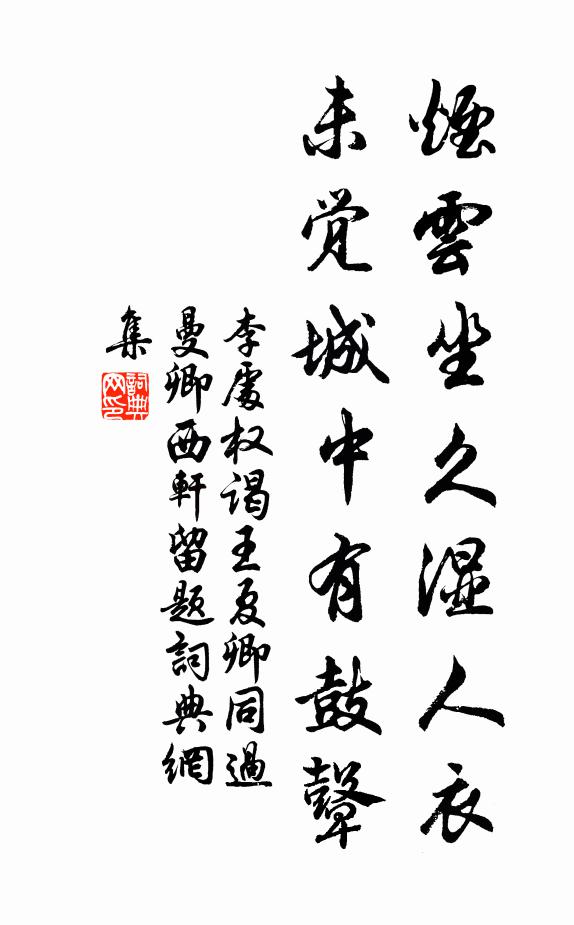 煙雲坐久濕人衣
未覺城中有鼓鼙
李處权謁王夏卿同過
曼卿西軒留題詞典網
集
詞典
网印